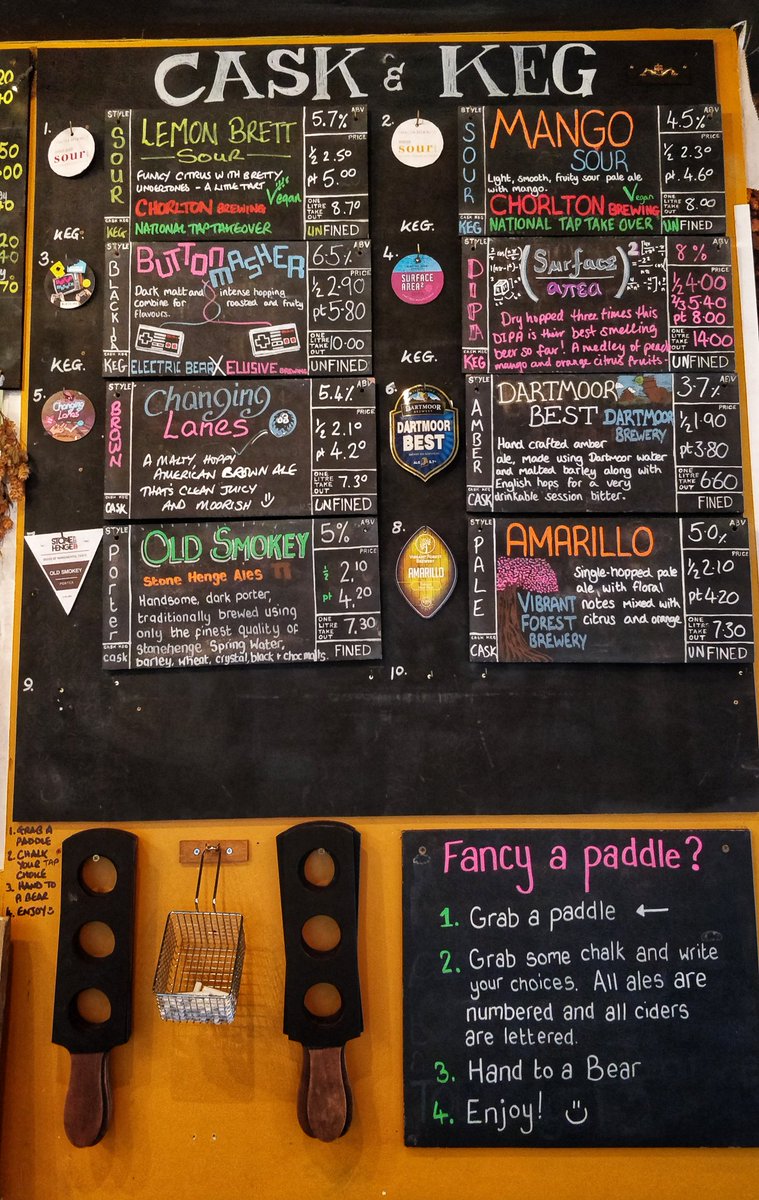 CASK & KEG
1.
sour
KEG.
STYLE
SOUR
CASK KEG
KEG
LEMON BRETT
SOUR
FUNKY CITRUS WITH BRETTY
UNDERTONES - A LITTLE TART
Vegan
CHORLTON BREWING
NATIONAL TAP TAKEOVER
5.7%
ABV
PRICE
½ 2.50
pt 5.00
ONE LITRE TAKE OUT 8.70
UNFINED
2.
sour
KEG.
STYLE
SOUR
CASK KEG
KEG
MANGO
SOUR
Light, smooth, fruity sour pale ale
with mango.
Vegan
CHORLTON BREWING
NATIONAL TAP TAKE OVER
4.5%
ABV
PRICE
½ 2.30
pt 4.60
ONE LITRE TAKE OUT 8.00
UNFINED
3.
KEG.
STYLE
BLACK IPA
CASK KEG
KEG
BUTTON MASHER
Dark malt and intense hopping
combine for roasted and fruity
flavours.
ELECTRIC BEAR X ELUSIVE BREWING
6.5%
ABV
PRICE
½ 2.90
pt 5.80
ONE LITRE TAKE OUT 10.00
UNFINED
4.
SURFACE
AREA²
KEG.
STYLE
DIPA
CASK KEG
KEG
(Surface
area)²
Dry hopped three times this
DIPA is their best smelling
beer so far! A medley of peach
mango and orange citrus fruits.
8%
ABV
PRICE
½ 4.00
⅔ 5.40
pt 8.00
ONE LITRE TAKE OUT 14.00
UNFINED
5.
Changing
Lanes
STYLE
BROWN
CASK KEG
CASK
CHANGING
LANES
A MALTY, HOPPY
AMERICAN BROWN ALE
THAT'S CLEAN JUICY
AND MOORISH
5.4%
ABV
PRICE
½ 2.10
pt 4.20
ONE LITRE TAKE OUT 7.30
UNFINED
6.
DARTMOOR
DARTMOOR
BEST
STYLE
AMBER
CASK KEG
CASK
DARTMOOR
BEST
DARTMOOR
BREWERY
Hand crafted amber
ale, made using Dartmoor water
and malted barley along with
English hops for a very
drinkable session bitter.
3.7%
ABV
PRICE
½ 1.90
pt 3.80
ONE LITRE TAKE OUT 6.60
FINED
STONE
HENGE
OLD SMOKEY
PORTER
STYLE
Porter
CASK KEG
cask
OLD SMOKEY
Stone Henge Ales
Handsome, dark porter,
traditionally brewed using
only the finest quality of
Stonehenge Spring Water,
barley, wheat, crystal, black + choc malts.
5%
ABV
PRICE
½ 2.10
pt 4.20
ONE LITRE TAKE OUT 7.30
FINED
8.
AMARILLO
STYLE
PALE
CASK KEG
CASK
AMARILLO
Single-hopped pale
ale, with floral
notes mixed with
citrus and orange
VIBRANT
FOREST
BREWERY
5.0%
ABV
PRICE
½ 2.10
pt 4.20
ONE LITRE TAKE OUT 7.30
UNFINED
9.
10.
1. GRAB A
PADDLE
2. CHALK
YOUR TAP
CHOICE
3. HAND TO
A BEAR
4. ENJOY
Fancy a paddle?
1. Grab a paddle ←
2. Grab some chalk and write
your choices. All ales are
numbered and all ciders
are lettered.
3. Hand to a Bear
4. Enjoy!